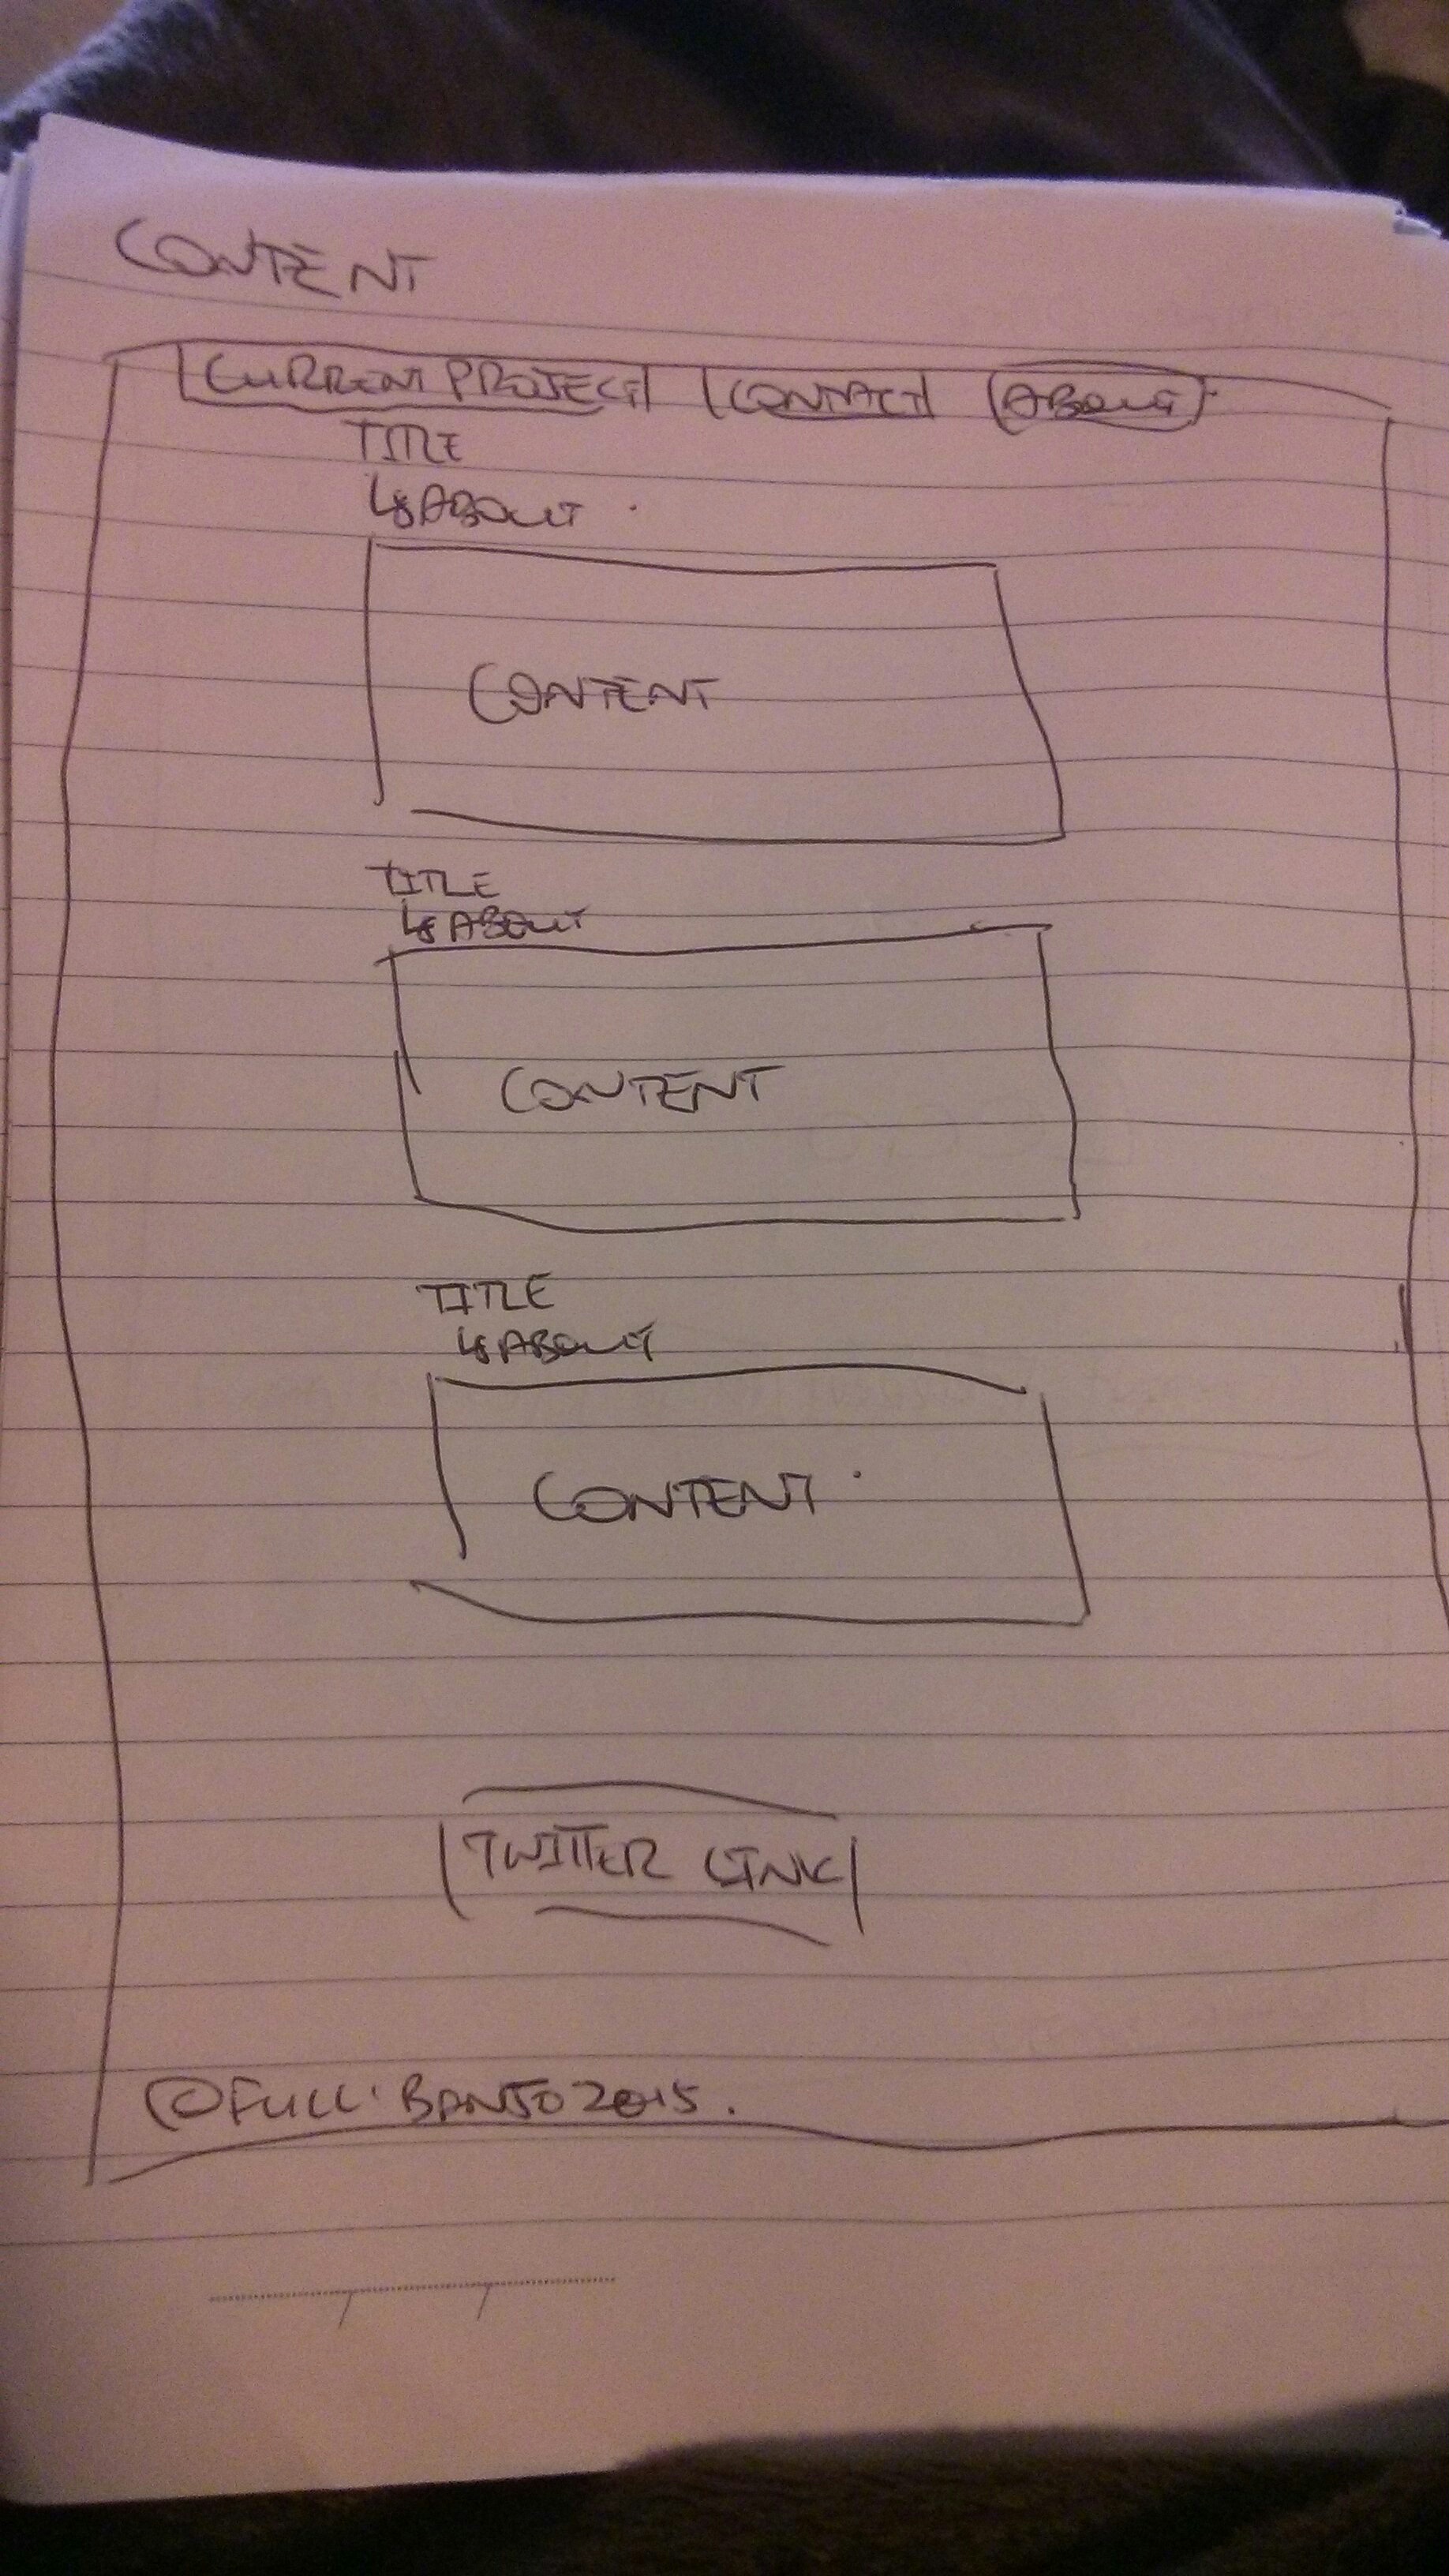 CONTENT
CURRENT PROJECT CONTACT ABOUT
TITLE
ABOUT
CONTENT
TITLE
ABOUT
CONTENT
TITLE
ABOUT
CONTENT
TWITTER LINK
© FULL BANJO 2015.